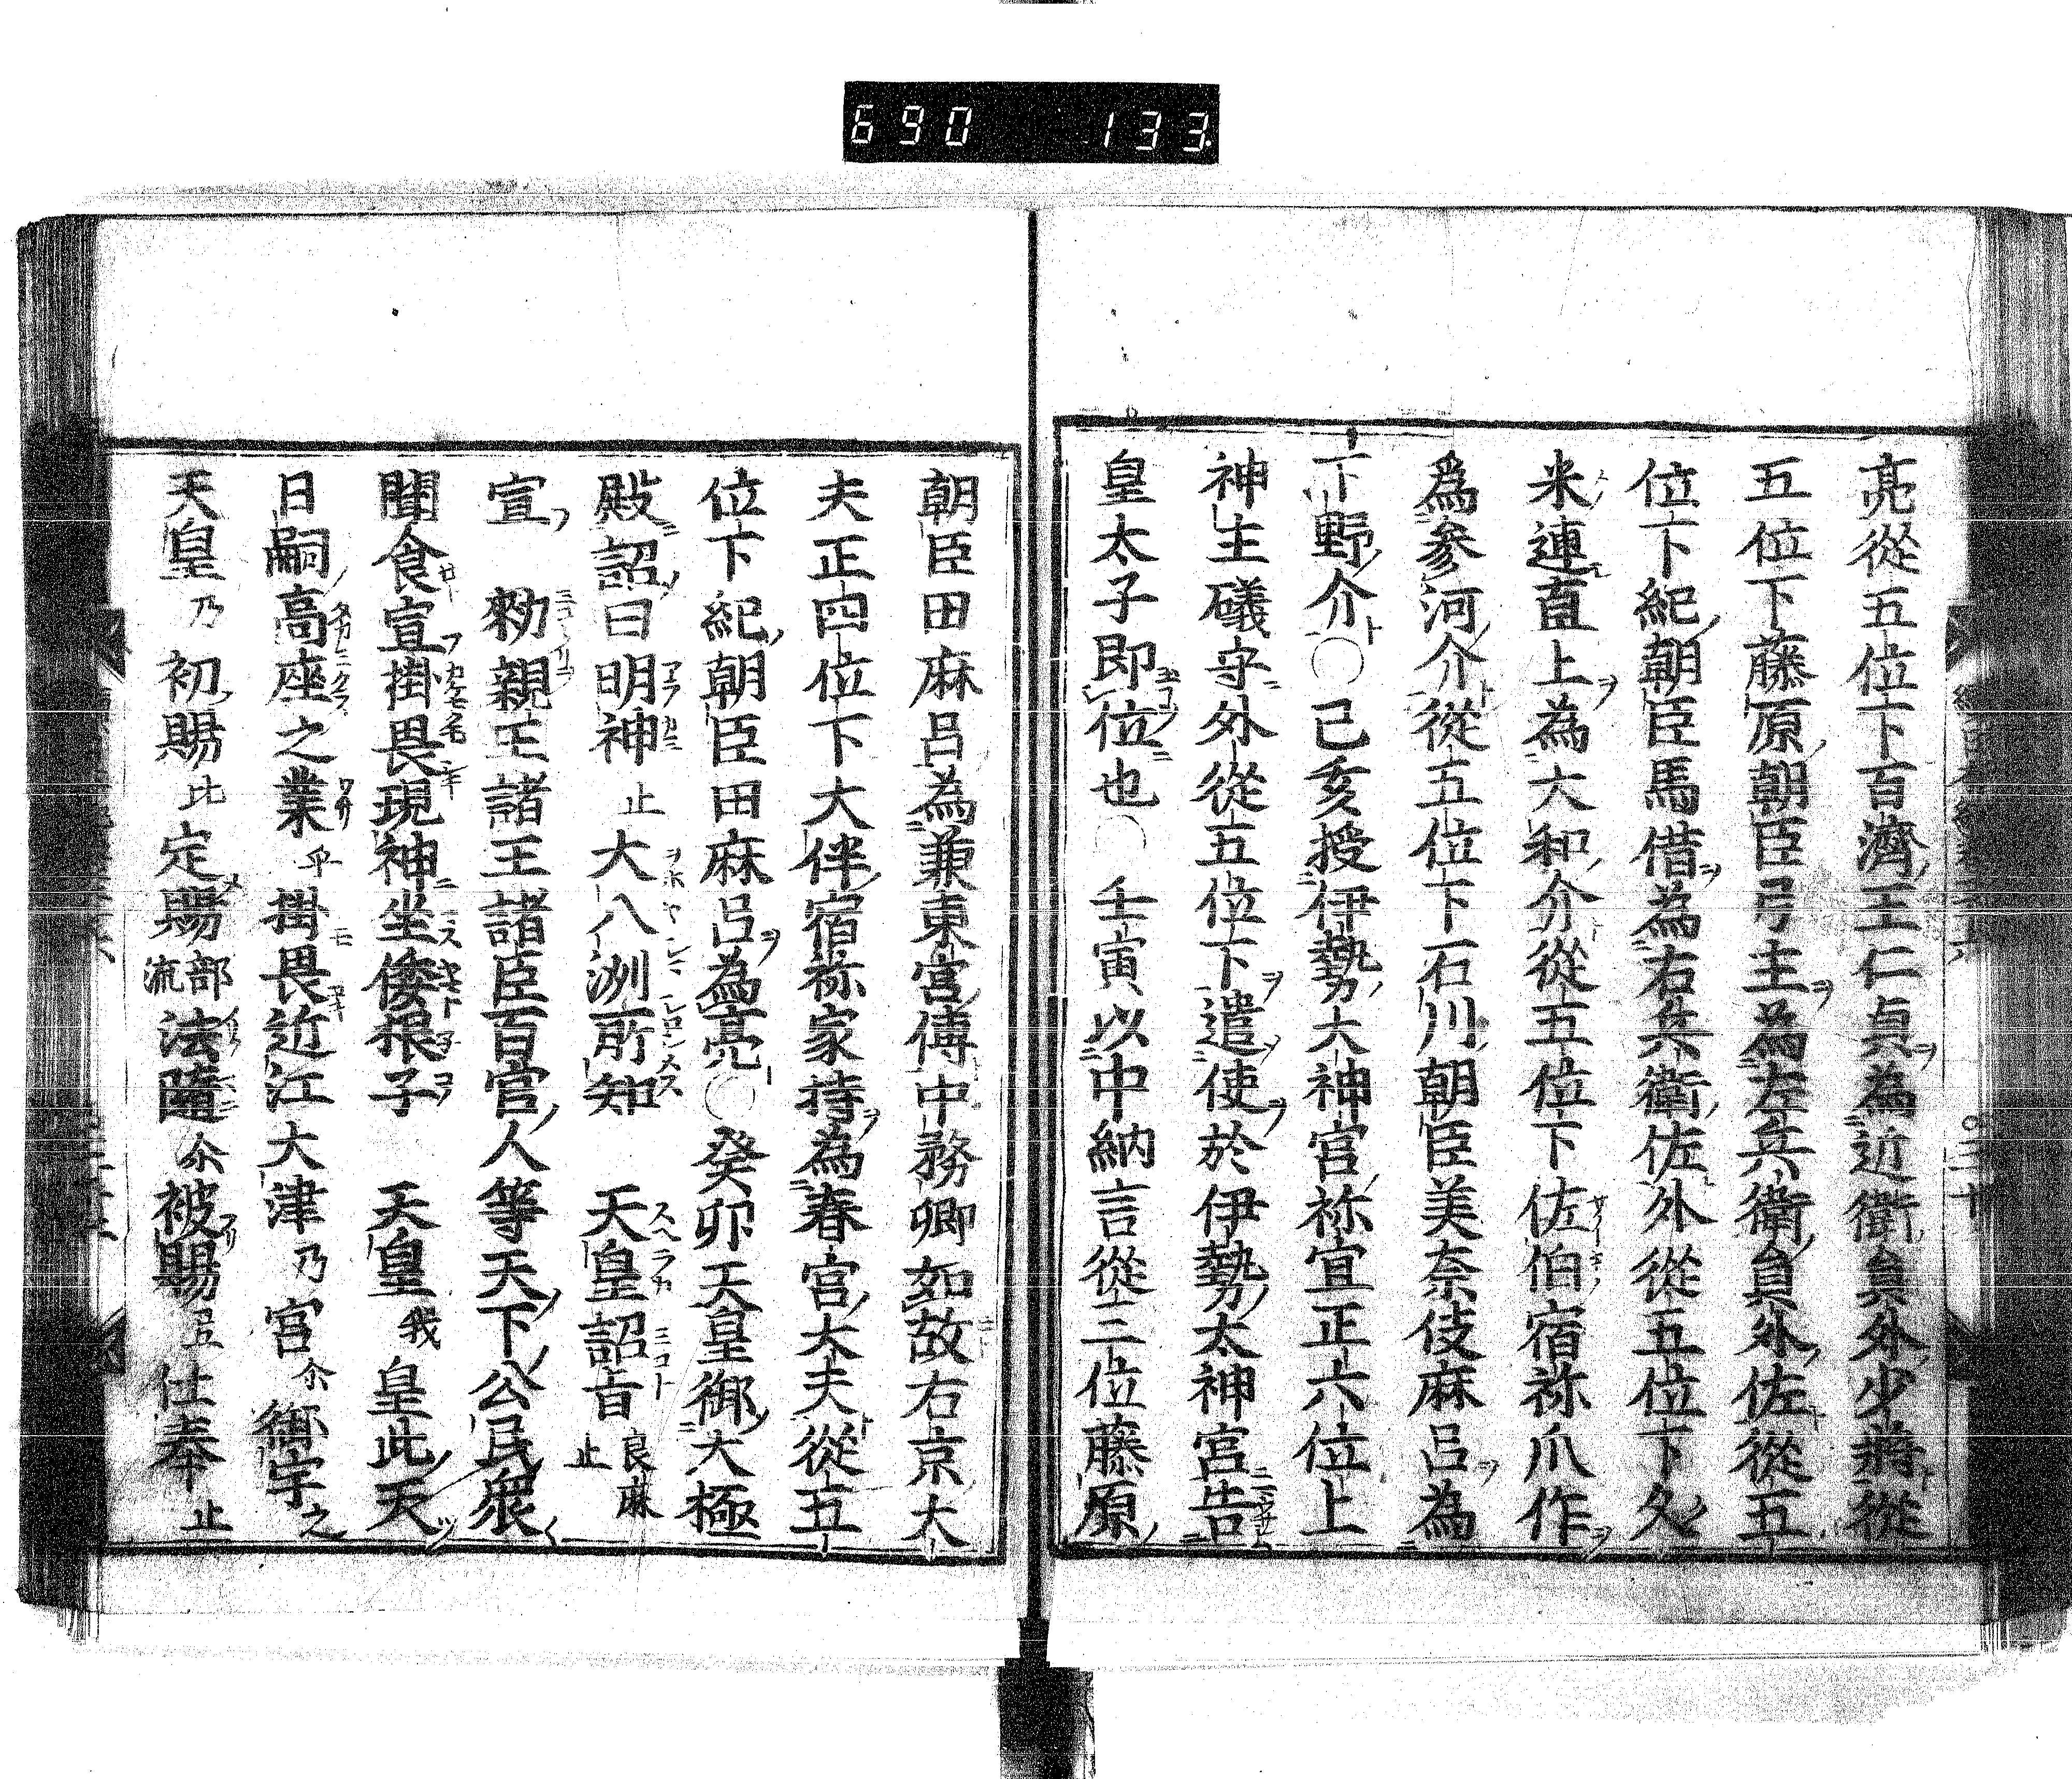 690 133
亮從五位下百濟王仁貞為近衛貟外少將從
五位下藤原朝臣弓主為左兵衛貟外佐從五
位下紀朝臣馬借為右兵衛佐外從五位下久
米連直上為大和介從五位下佐伯宿祢爪作
爲參河介從五位下石川朝臣美奈伎麻呂為
下野介〇己亥授伊勢大神宮祢宜正六位上
神主礒守外從五位下遣使於伊勢太神宮告
皇太子即位也〇壬寅以中納言從三位藤原
朝臣田麻呂為兼東宮傅中務卿如故右京大
夫正四位下大伴宿祢家持為春宮大夫從五
位下紀朝臣田麻呂為亮〇癸卯天皇御大極
殿詔曰明神止大八洲所知 天皇詔旨良麻止
宣 勑親王諸王諸臣百官人等天下公民衆
聞食宣掛畏現神坐倭根子 天皇我皇此天
日嗣高座之業乎掛畏近江大津乃宮尒御宇之
天皇乃初賜比定賜部流法隨尒被賜弖仕奉止